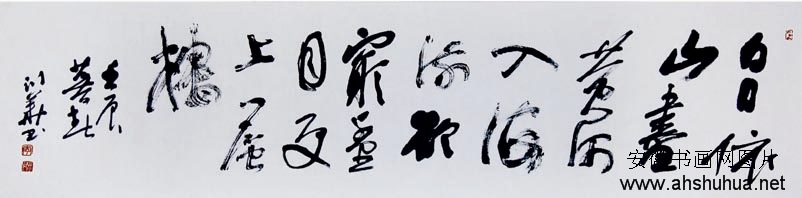 白日依
山盡
黄河
入海
流欲
窮千里
目更
上一層
樓
壬辰
暮春
安徽书画网图片
www.ahshuhua.net